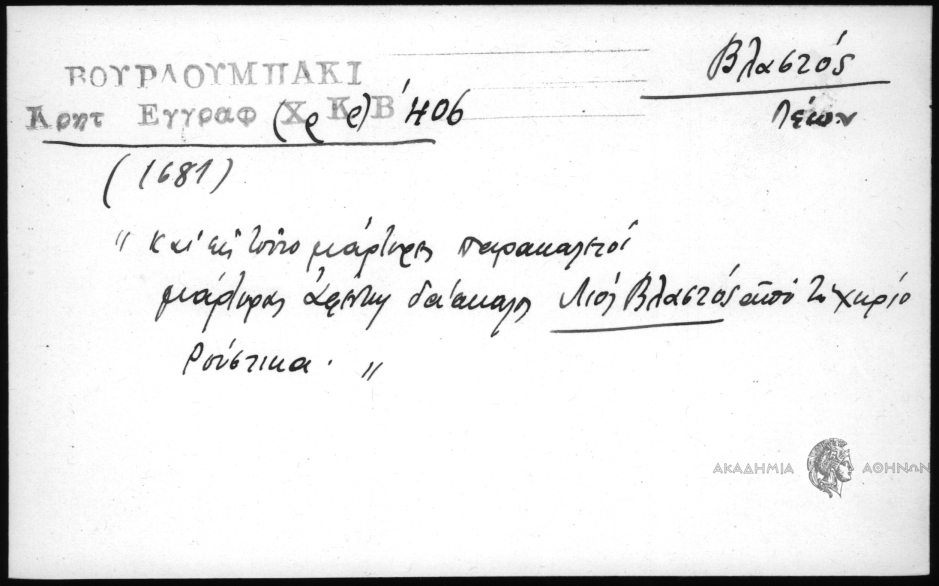 ΒΟΥΡΛΟΥΜΠΑΚΙ
Κρητ Εγγραφ Χ Κ Β 406
Βλαστός
Λέων
(1681)
" Και εις τούτο μάρτυρες παρακαλετοί
μάρτυρας Λιός Βλαστός από το χωριό
Ρούστικα. "
ΑΚΑΔΗΜΙΑ ΑΘΗΝΩΝ